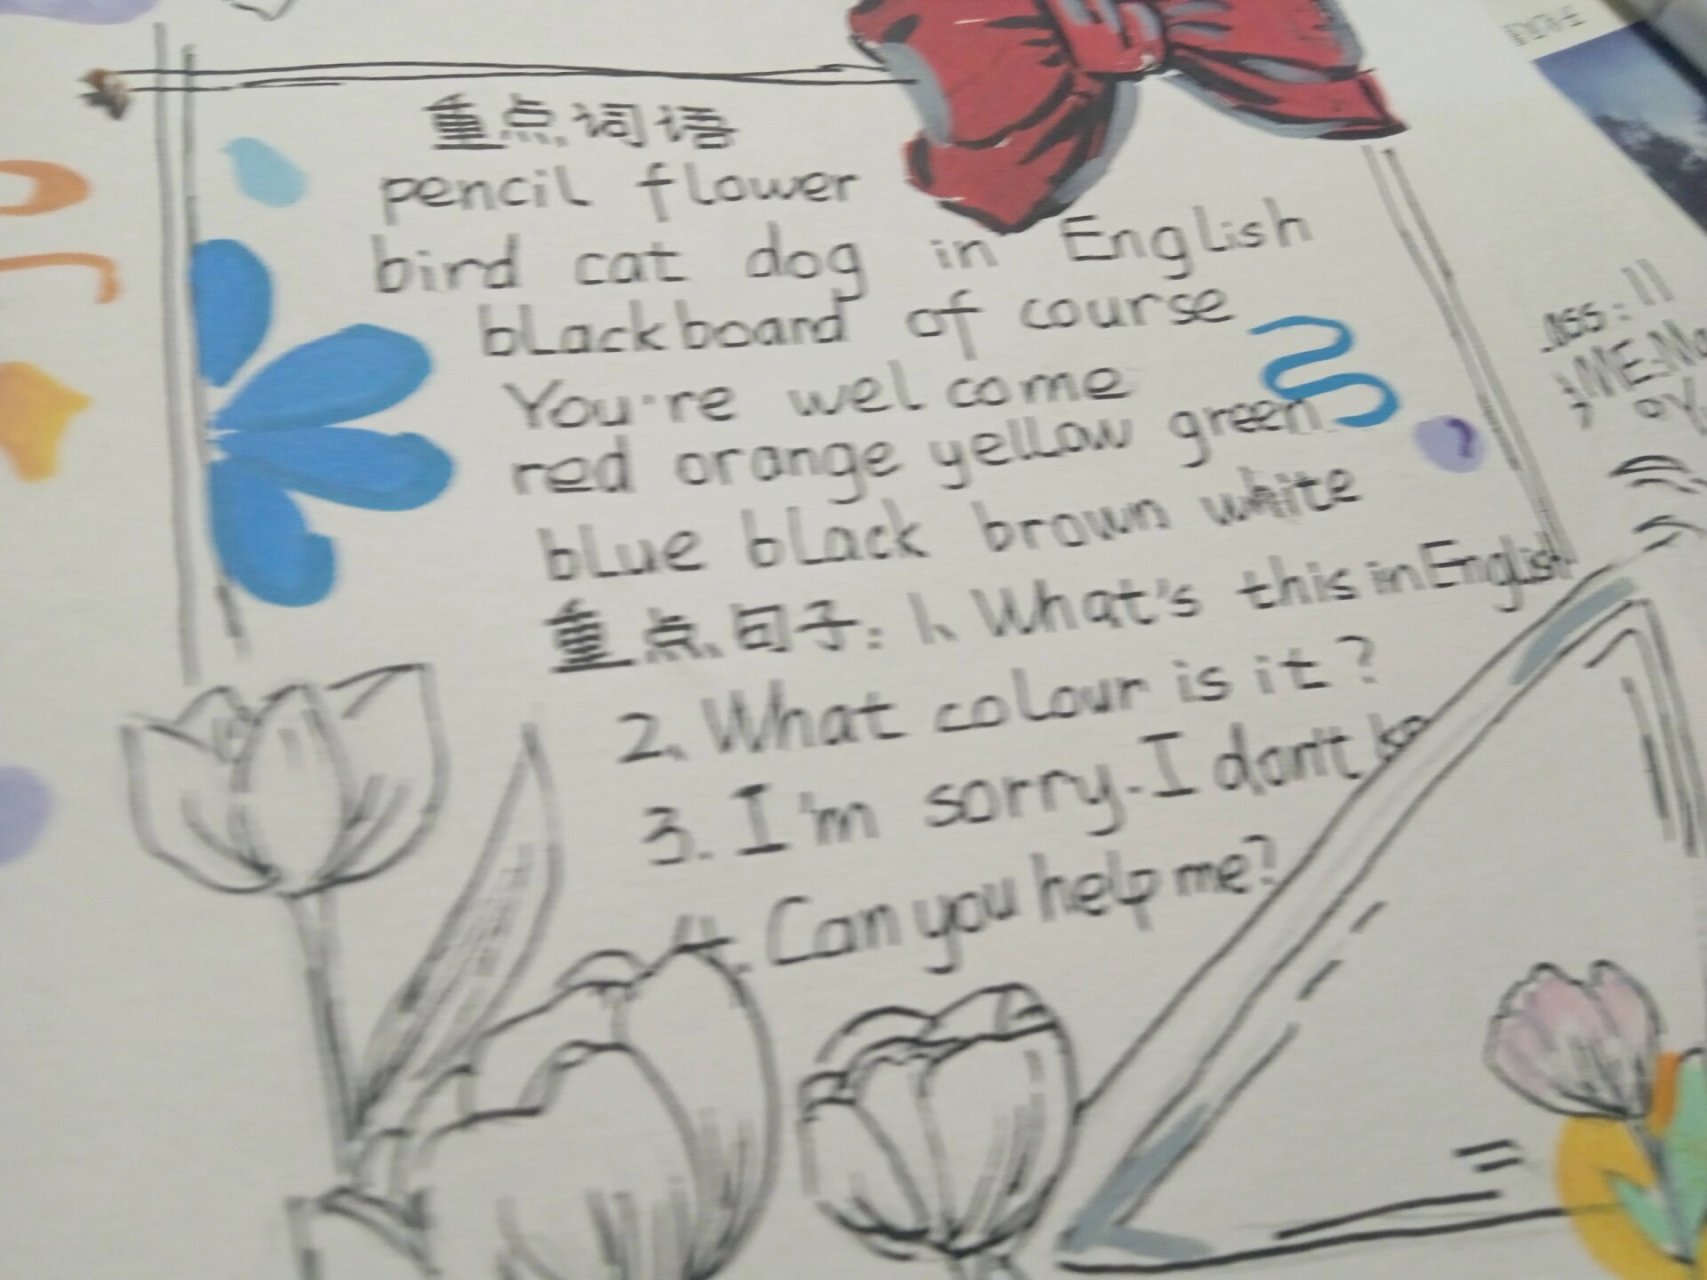 重点词语
pencil flower
bird cat dog in English
blackboard of course
You're welcome
red orange yellow green
blue black brown white
重点句子: 1、What's this in English
2、What colour is it?
3. I'm sorry. I don't
4. Can you help me?